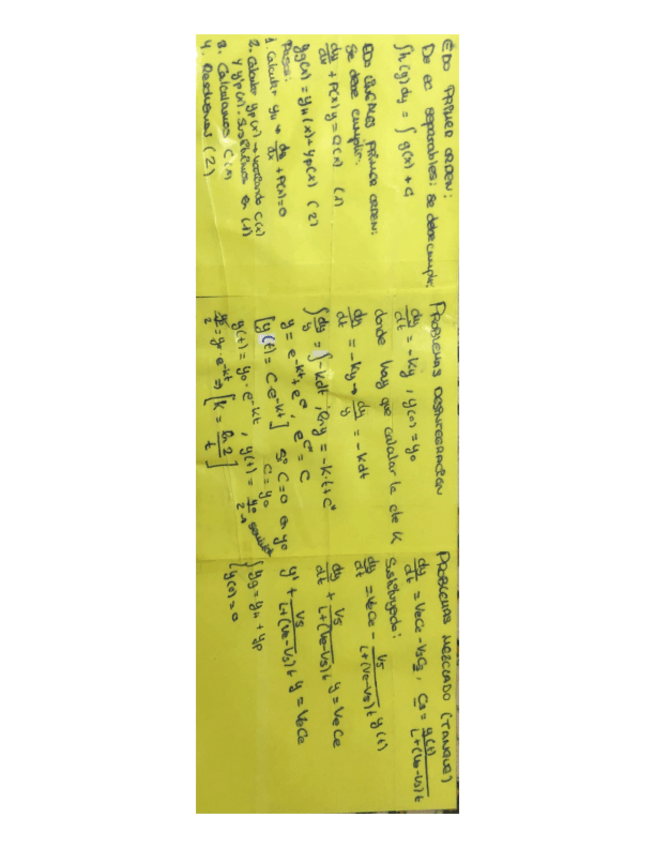 EDO PRIMER ORDEN:
De ec separables: se debe cumplir:
∫h(y)dy = ∫g(x) + C
EDO LINEALES PRIMER ORDEN:
Se debe cumplir:
dy/dx + P(x)y = Q(x) (1)
yg(x) = yH(x) + yp(x) (2)
Pasos:
1. Calcular yH → dy/dx + P(x) = 0
2. Calcular yp(x) → variando C(x)
y y'p(x). Sustituimos en (1)
3. Calculamos C(x)
4. Resolvemos (2)
PROBLEMAS DESINTEGRACIÓN
dy/dt = -ky, y(0) = y0
donde hay que calcular la cte k
dy/dt = -ky → dy/y = -kdt
∫dy/y = ∫-kdt ; ln y = -k·t + c*
y = e^-kt + e^c*, e^c* = C
[y(t) = C e^-kt] si C=0 en y0
C = y0
y(t) = y0·e^-kt, y(t) = y0/2 →
y0/2 = y0·e^-kt ⇒ [k = ln 2/t]
PROBLEMAS MEZCLADO (TANQUE)
dy/dt = VeCe - VsCs, Cs = y(t)/L+(Ve-Vs)t
Sustituyendo:
dy/dt = VeCe - Vs/L+(Ve-Vs)t y(t)
dy/dt + Vs/L+(Ve-Vs)t y = VeCe
y' + Vs/L+(Ve-Vs)t y = VeCe
{yg = yH + yp
{y(0) = 0